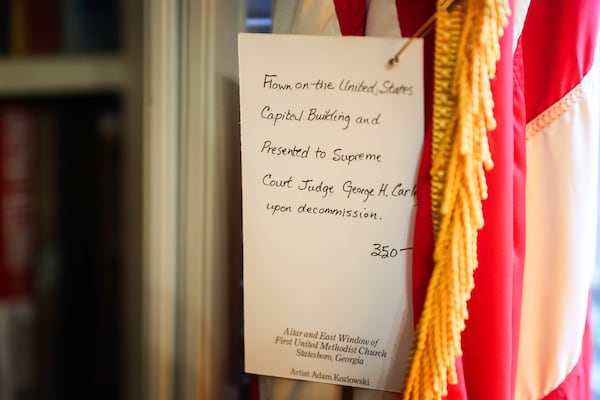 Flown on the United States
Capitol Building and
Presented to Supreme
Court Judge George H.
upon decommission.
350—
Altar and East Window of
First United Methodist Church
Statesboro, Georgia
Artist Adam Kozlowski